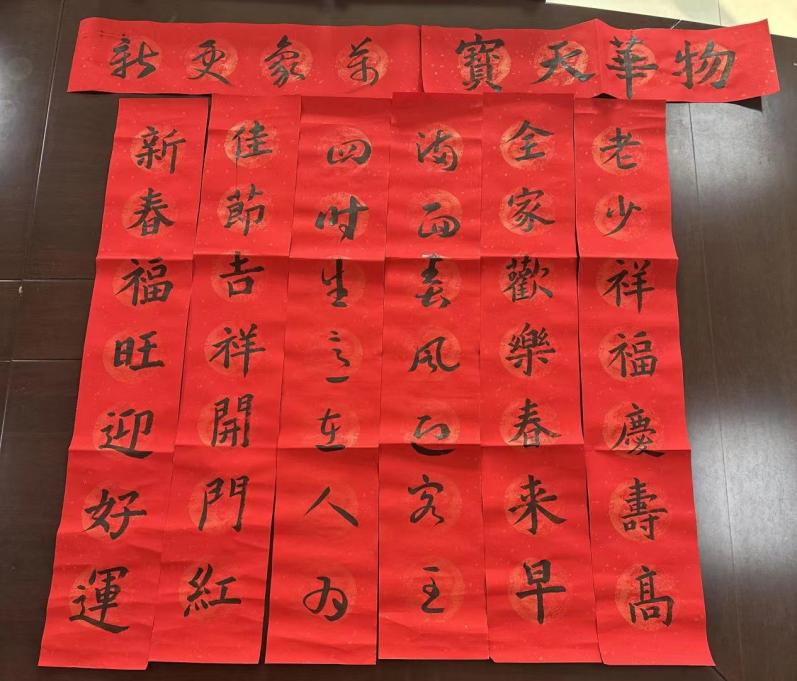 物華天寶
萬象更新
老少祥福慶壽高
全家歡樂春来早
滿面春風迎客至
四時生意在人為
佳節吉祥開門紅
新春福旺迎好運